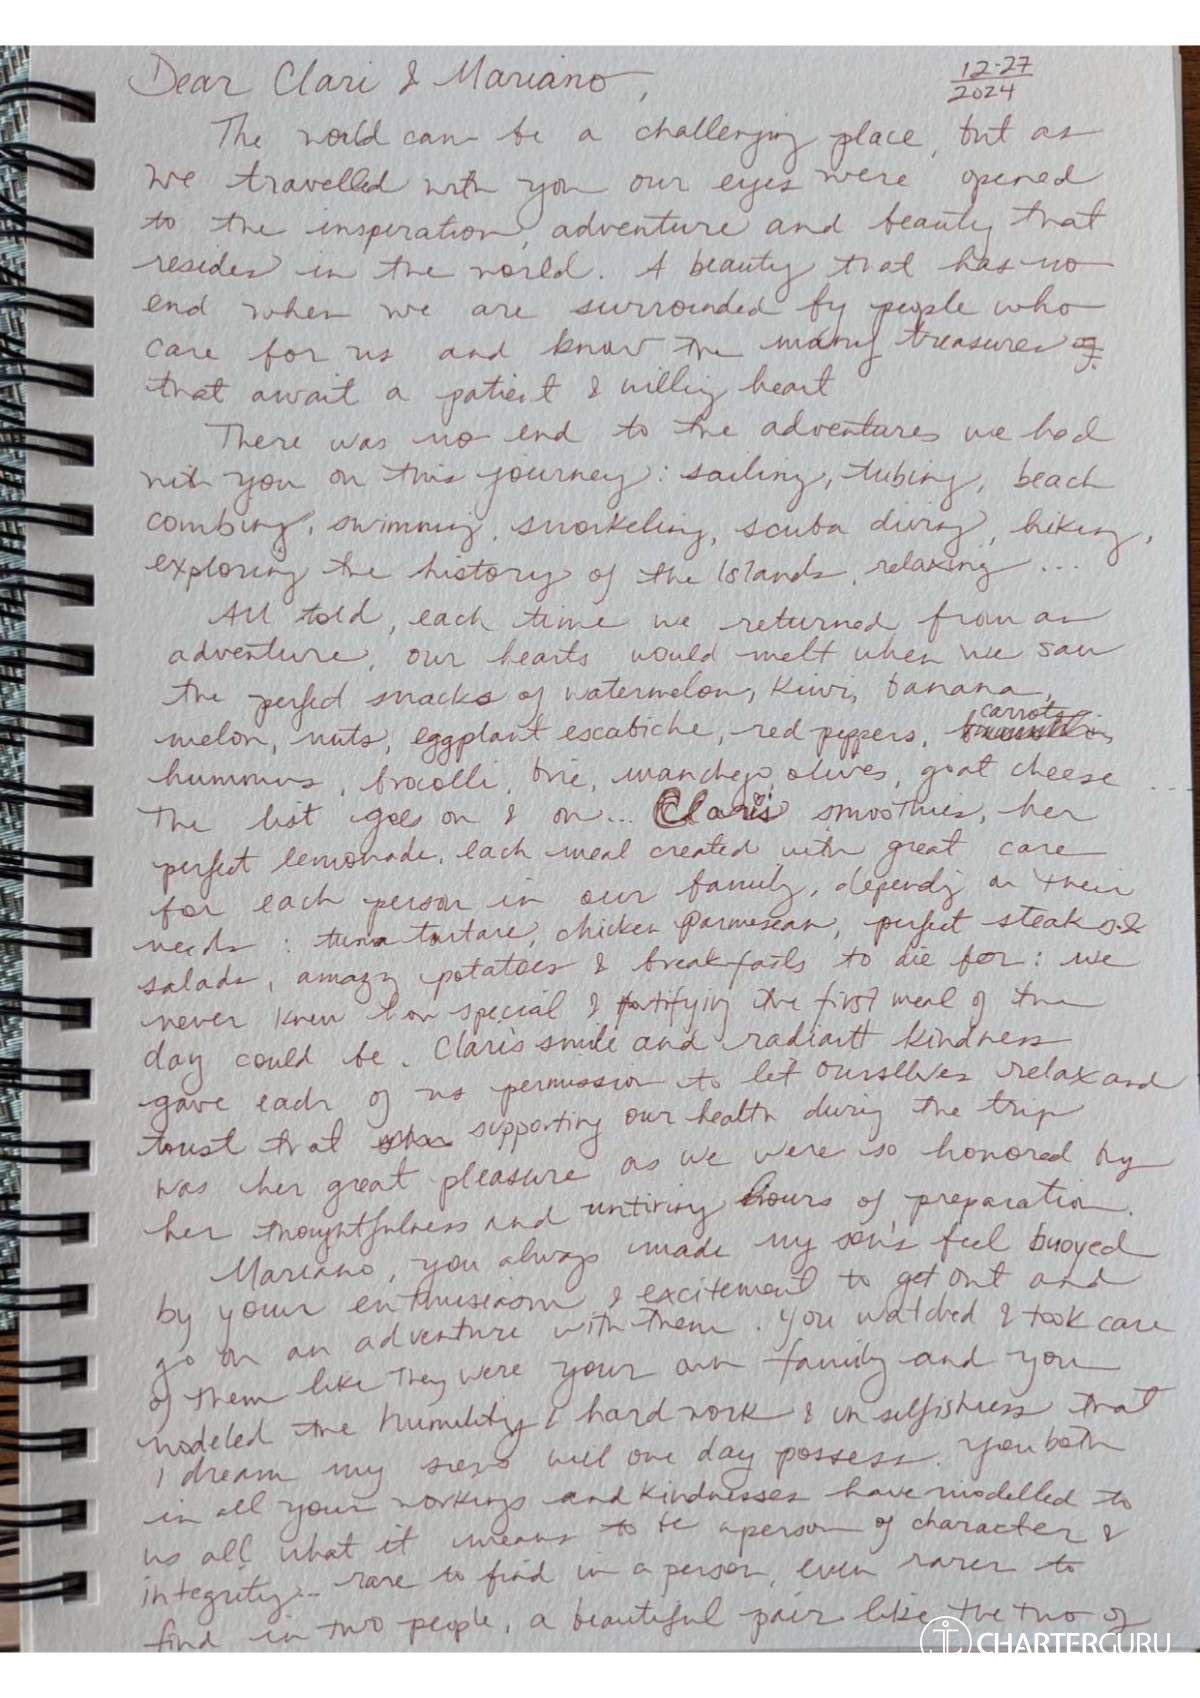 Dear Clari & Mariano,
12-27
2024
The world can be a challenging place, but as
we travelled with you our eyes were opened
to the inspiration, adventure and beauty that
resides in the world. A beauty that has no
end when we are surrounded by people who
care for us and know the many treasures
that await a patient & willing heart
There was no end to the adventures we had
with you on this journey: sailing, tubing, beach
combing, swimming, snorkeling, scuba diving, hiking,
exploring the history of the Islands, relaxing ...
All told, each time we returned from an
adventure, our hearts would melt when we saw
the perfect snacks of watermelon, kiwi, banana,
melon, nuts, eggplant escabiche, red peppers, carrots,
hummus, brocolli, brie, manchego, olives, goat cheese ...
The list goes on & on... Clari's smoothies, her
perfect lemonade, each meal created with great care
for each person in our family, depending on their
needs: tuna tartare, chicken parmesean, perfect steaks &
salads, amazing potatoes & breakfasts to die for: we
never knew how special & fortifying the first meal of the
day could be. Clari's smile and radiant kindness
gave each of us permission to let ourselves relax and
trust that supporting our health during the trip
was her great pleasure as we were so honored by
her thoughtfulness and untiring hours of preparation.
Mariano, you always made my son's feel buoyed
by your enthusiasm & excitement to get out and
go on an adventure with them. You watched & took care
of them like they were your own family and you
modeled the humility & hard work & unselfishness that
I dream my sons will one day possess. You both
in all your workings and kindnesses have modelled to
us all what it means to be a person of character &
integrity... rare to find in a person, even rarer to
find in two people, a beautiful pair like the two of
CHARTERGURU